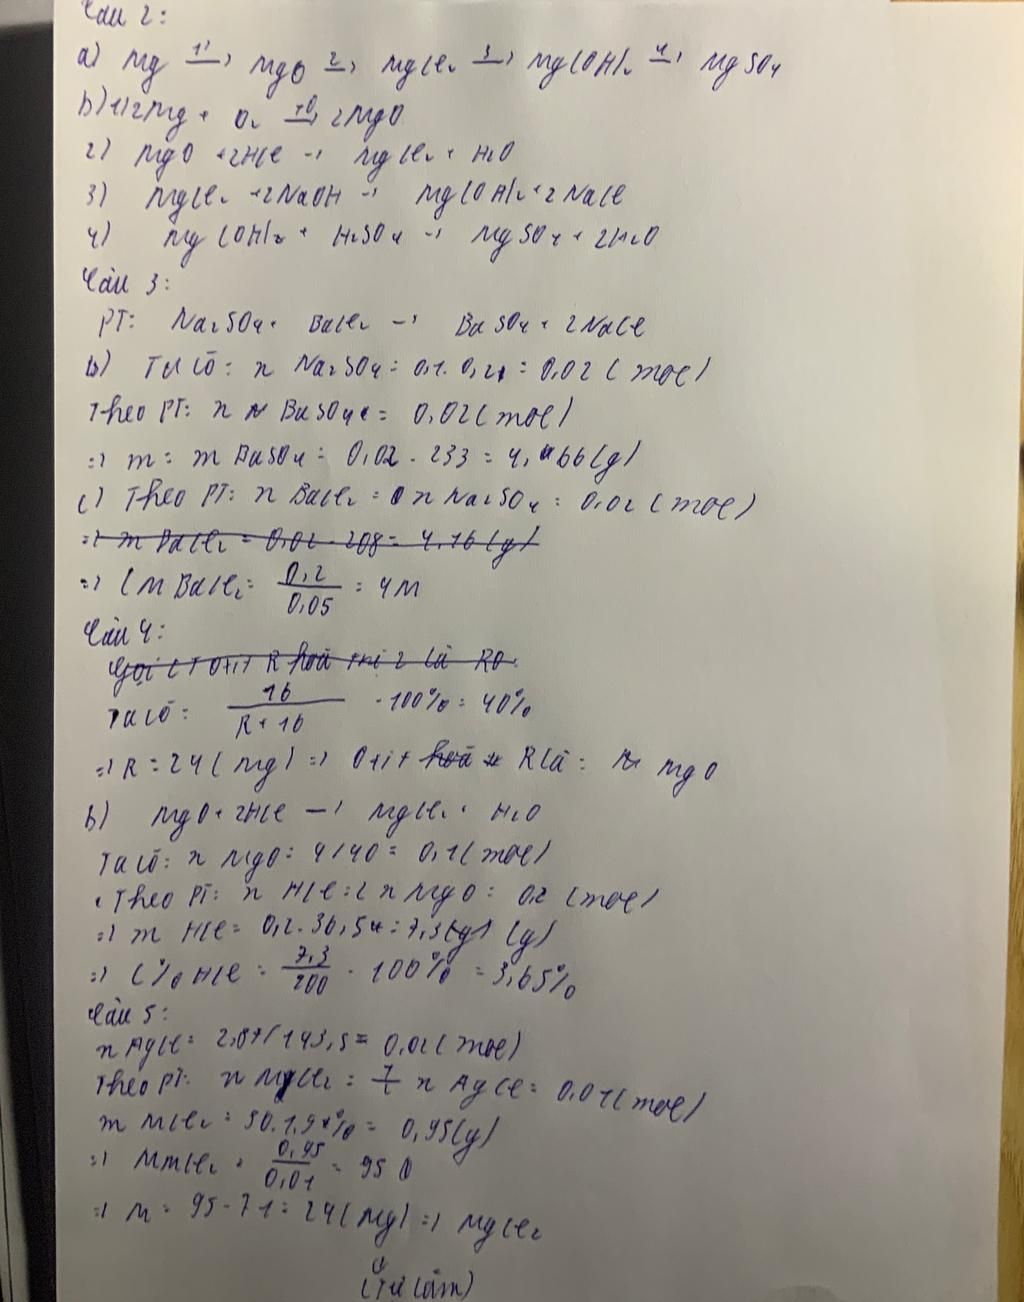 Câu 2:
a) Mg 1→ MgO 2→ MgCl₂ 3→ Mg(OH)₂ 4→ MgSO₄
b) 1) 2Mg + O₂ t0→ 2MgO
2) MgO + 2HCl → MgCl₂ + H₂O
3) MgCl₂ + 2NaOH → Mg(OH)₂ + 2NaCl
4) Mg(OH)₂ + H₂SO₄ → MgSO₄ + 2H₂O
Câu 3:
PT: Na₂SO₄ + BaCl₂ → BaSO₄ + 2NaCl
b) Ta có: n Na₂SO₄ = 0,1. 0,2 = 0,02 (mol)
Theo PT: n BaSO₄ = 0,02 (mol)
=> m = m BaSO₄ = 0,02 . 233 = 4,66 (g)
c) Theo PT: n BaCl₂ = n Na₂SO₄ = 0,02 (mol)
=> m BaCl₂ = 0,02 . 208 = 4,16 (g)
=> CM BaCl₂ = 0,2 / 0,05 = 4M
Câu 4:
Gọi CT Oxit R hoá trị 2 là RO.
Ta có: 16 / R + 16 . 100% = 40%
=> R = 24 (Mg) => Oxit hoá R là: MgO
b) MgO + 2HCl → MgCl₂ + H₂O
Ta có: n MgO = 4/40 = 0,1 (mol)
Theo PT: n HCl = 2 n MgO = 0,2 (mol)
=> m HCl = 0,2 . 36,5 = 7,3 (g) (g)
=> C% HCl = 7,3 / 200 . 100% = 3,65%
Câu 5:
n AgCl = 2,87/143,5 = 0,02 (mol)
Theo PT: n MCl₂ = n AgCl = 0,01 (mol)
m MCl₂ = 50.1,9% = 0,95 (g)
=> M MCl₂ = 0,95 / 0,01 = 95
=> M = 95 - 71 = 24 (Mg) => MgCl₂
(Tự làm)